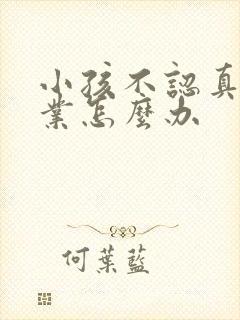 小孩不認真
業怎麼办
何葉藍